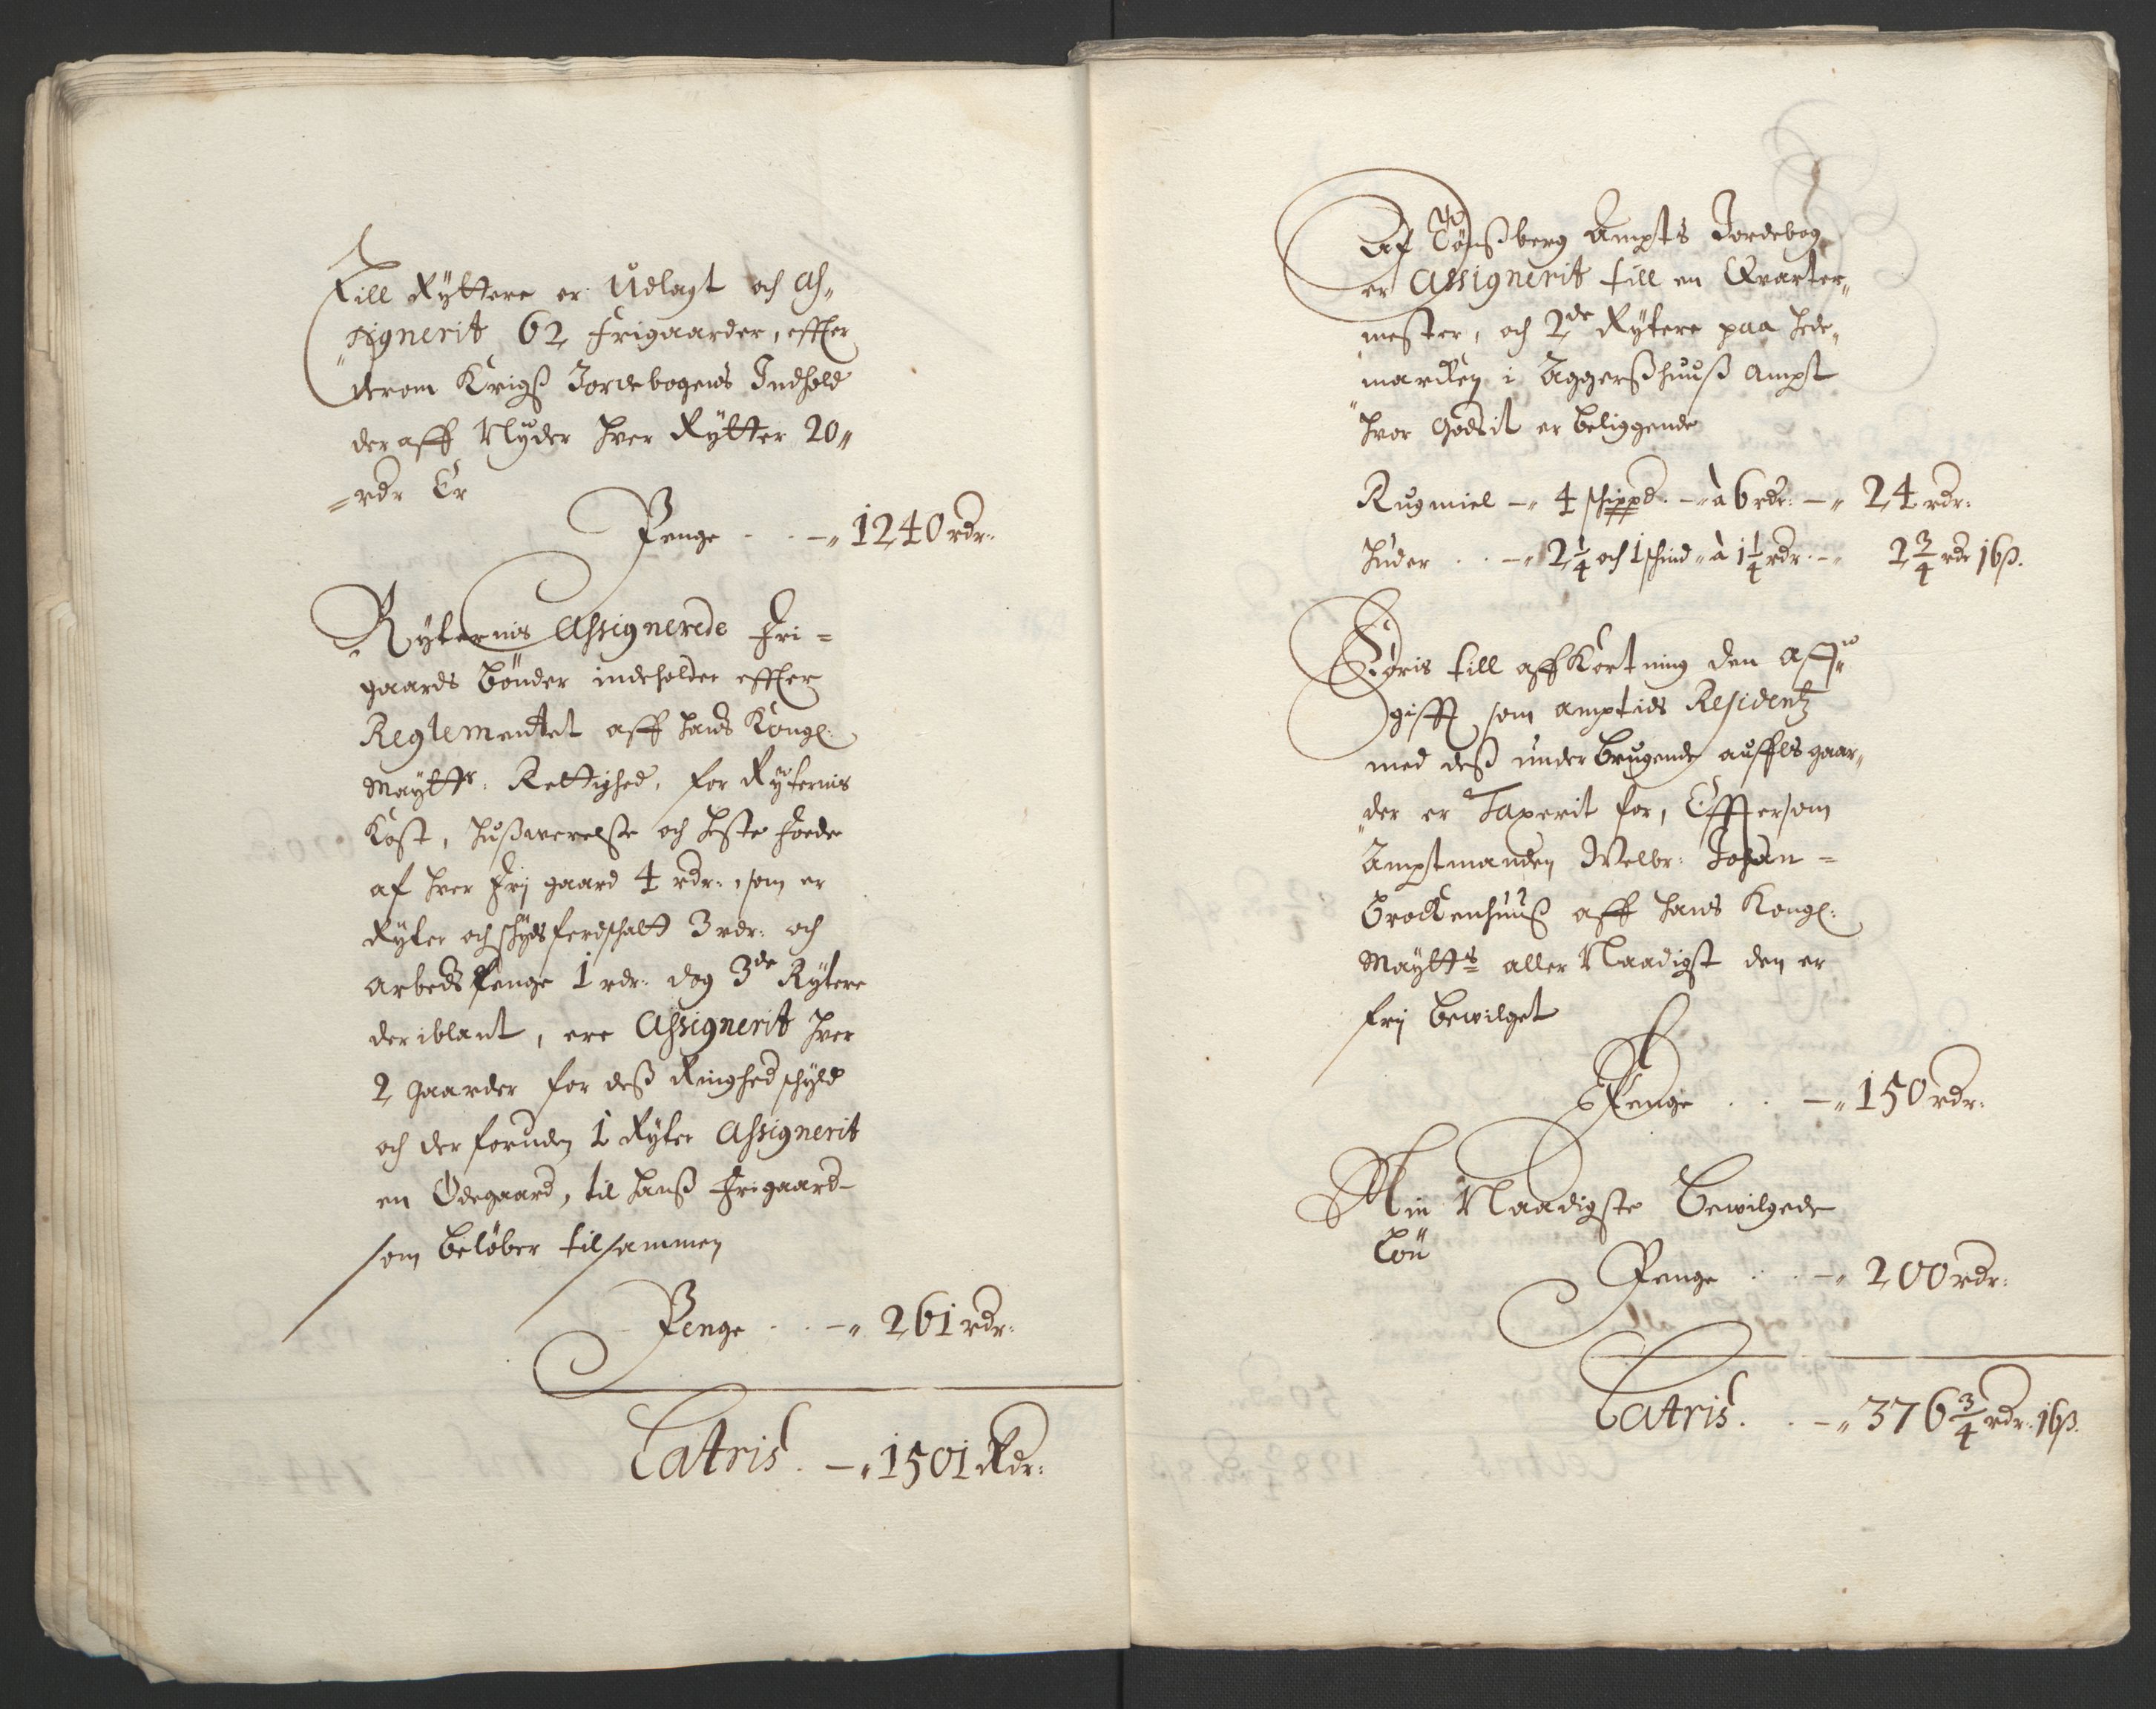 Till Ryttere er Udlagt och As„
„signerit 62 Frigaarder, effter
derom Krigß Jordebogens Indhold
der aff Nyder hver Rytter 20„
=rdr Er
Penge . . —„ 1240 rdr:
Ryternis Assignerede Fri=
gaards Bönder indeholder effter
Reglementet aff hans Kongl:
Maytts: Rettighed, for Ryternis
Kost, hußwerelse och heste Foeder
af hver Frij gaard 4 rdr: som er
Ryter och schydsferdschatt 3 rdr: och
Arbeds Penge 1 rdr: dog 3de Rytere
der iblant, ere Assignerit hver
2 gaarder for deß Ringhed schyld
och der foruden 1 Ryter Assignerit
en Ödegaard, til hanß Frigaard
som beløber tilsammen
Penge . . —„ 261 rdr:
Latris . —„ 1501 Rdr:
Af Tönßberg Ampts Jordebog
er Assignerit till en Qvarter„
„mester, och 2de Rytere paa Hede„
„marcken i Aggerßhuuß Ampt
hvor Godsit er beliggende
Rugmiel —„ 4 schippd. —„ à 6 rdr: —„ 24 rdr:
Huder . . —„ 2 1/4 och 1 schind „ à 1 1/4 rdr. —„ 2 3/4 rdr 16 ß.
Føris till affkortning den Aff„
gifft som amptids Residentz
med deß underbrugende auffls gaar„
„der er Taxerit for, Efftersom
Amptmanden Welbr: Johan=
Brockenhuuß aff hans Kongl:
Maytts aller Naadigst den er
frij bewilget
Penge . . —„ 150 rdr:
Min Naadigste Bewilgede
Lön
Penge . . —„ 200 rdr:
Latris . . —„ 376 3/4 rdr: 16 ß.